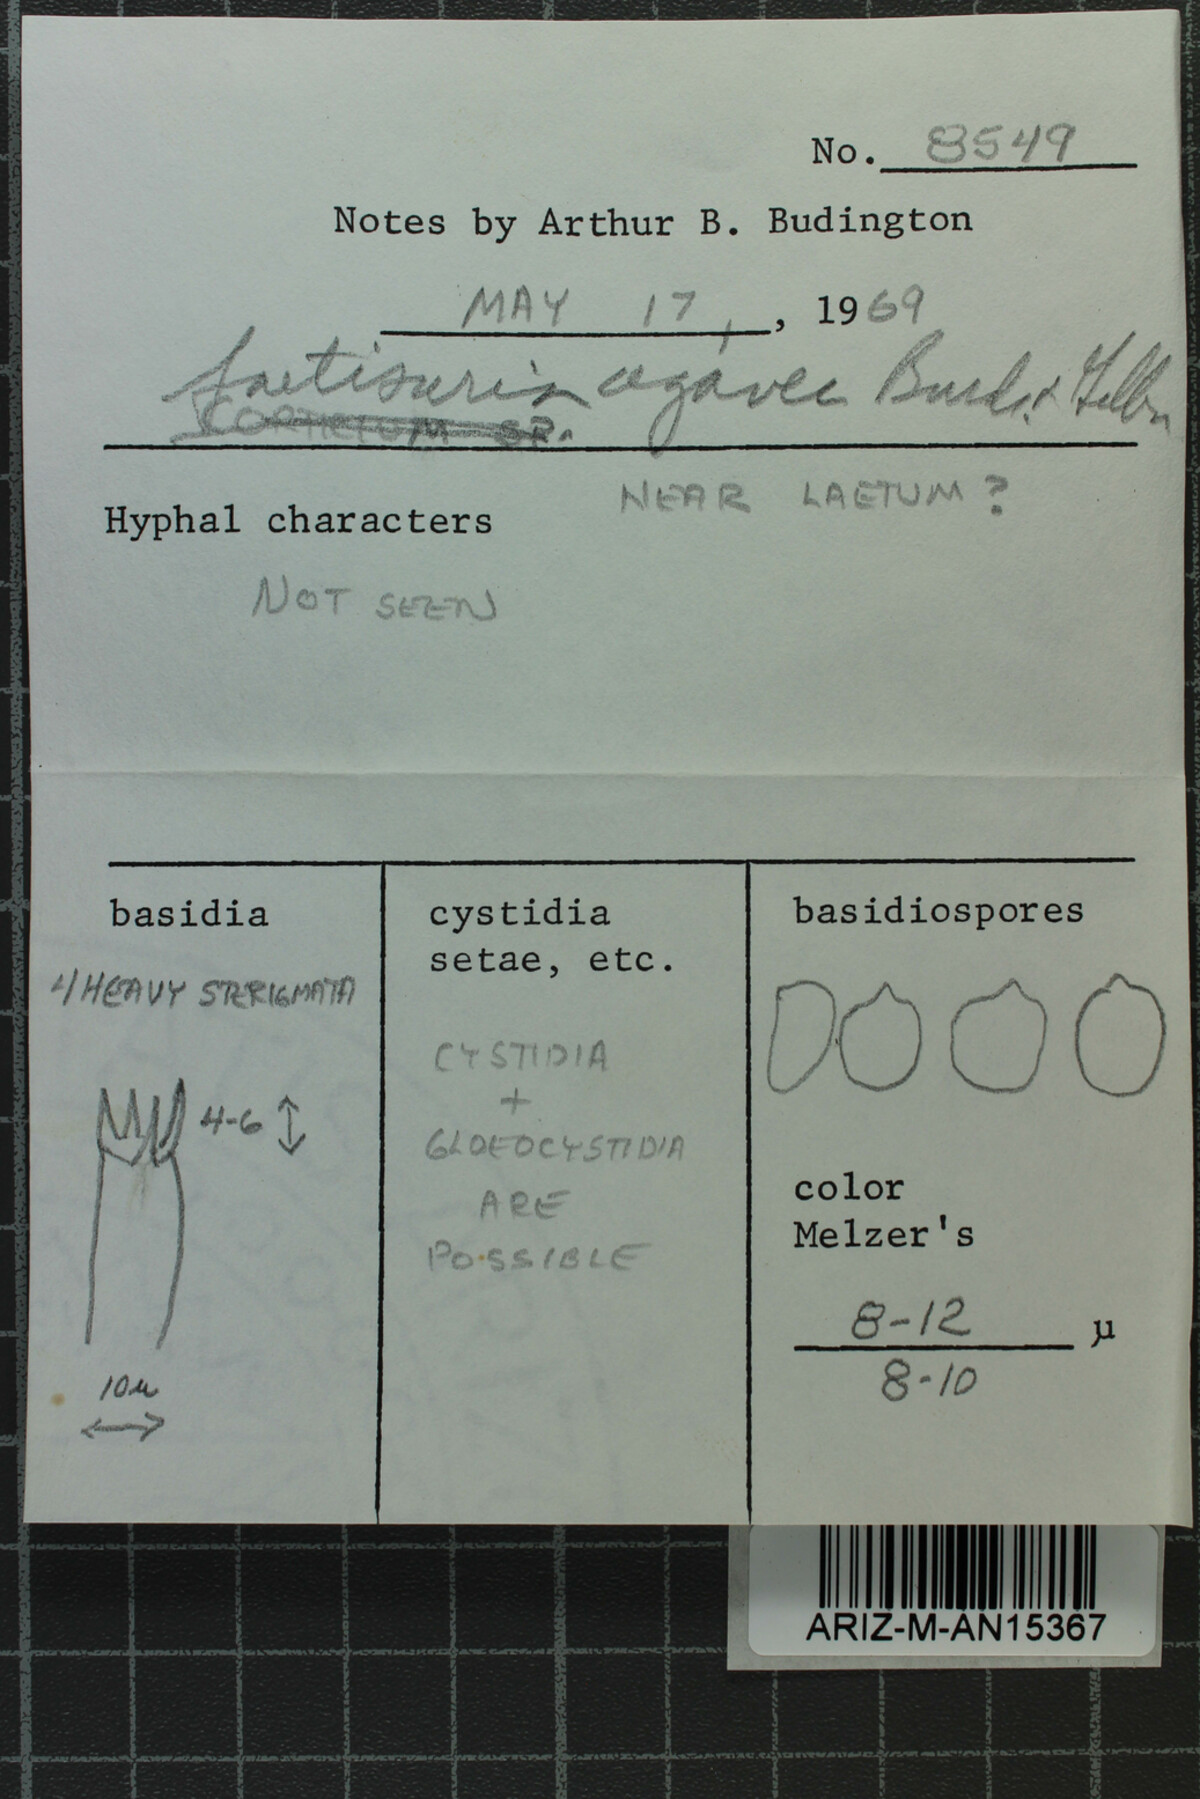 No. 8549
Notes by Arthur B. Budington
MAY 17, , 1969
Laetisaria agaves Burds. & Gilbn
CORTICIUM SP.
NEAR LAETUM?
Hyphal characters
NOT SEEN
basidia
4 HEAVY STERIGMATA
4-6
10µ
cystidia
setae, etc.
CYSTIDIA
+
GLOEOCYSTIDIA
ARE
POSSIBLE
basidiospores
color
Melzer's
8-12 µ
8-10
ARIZ-M-AN15367